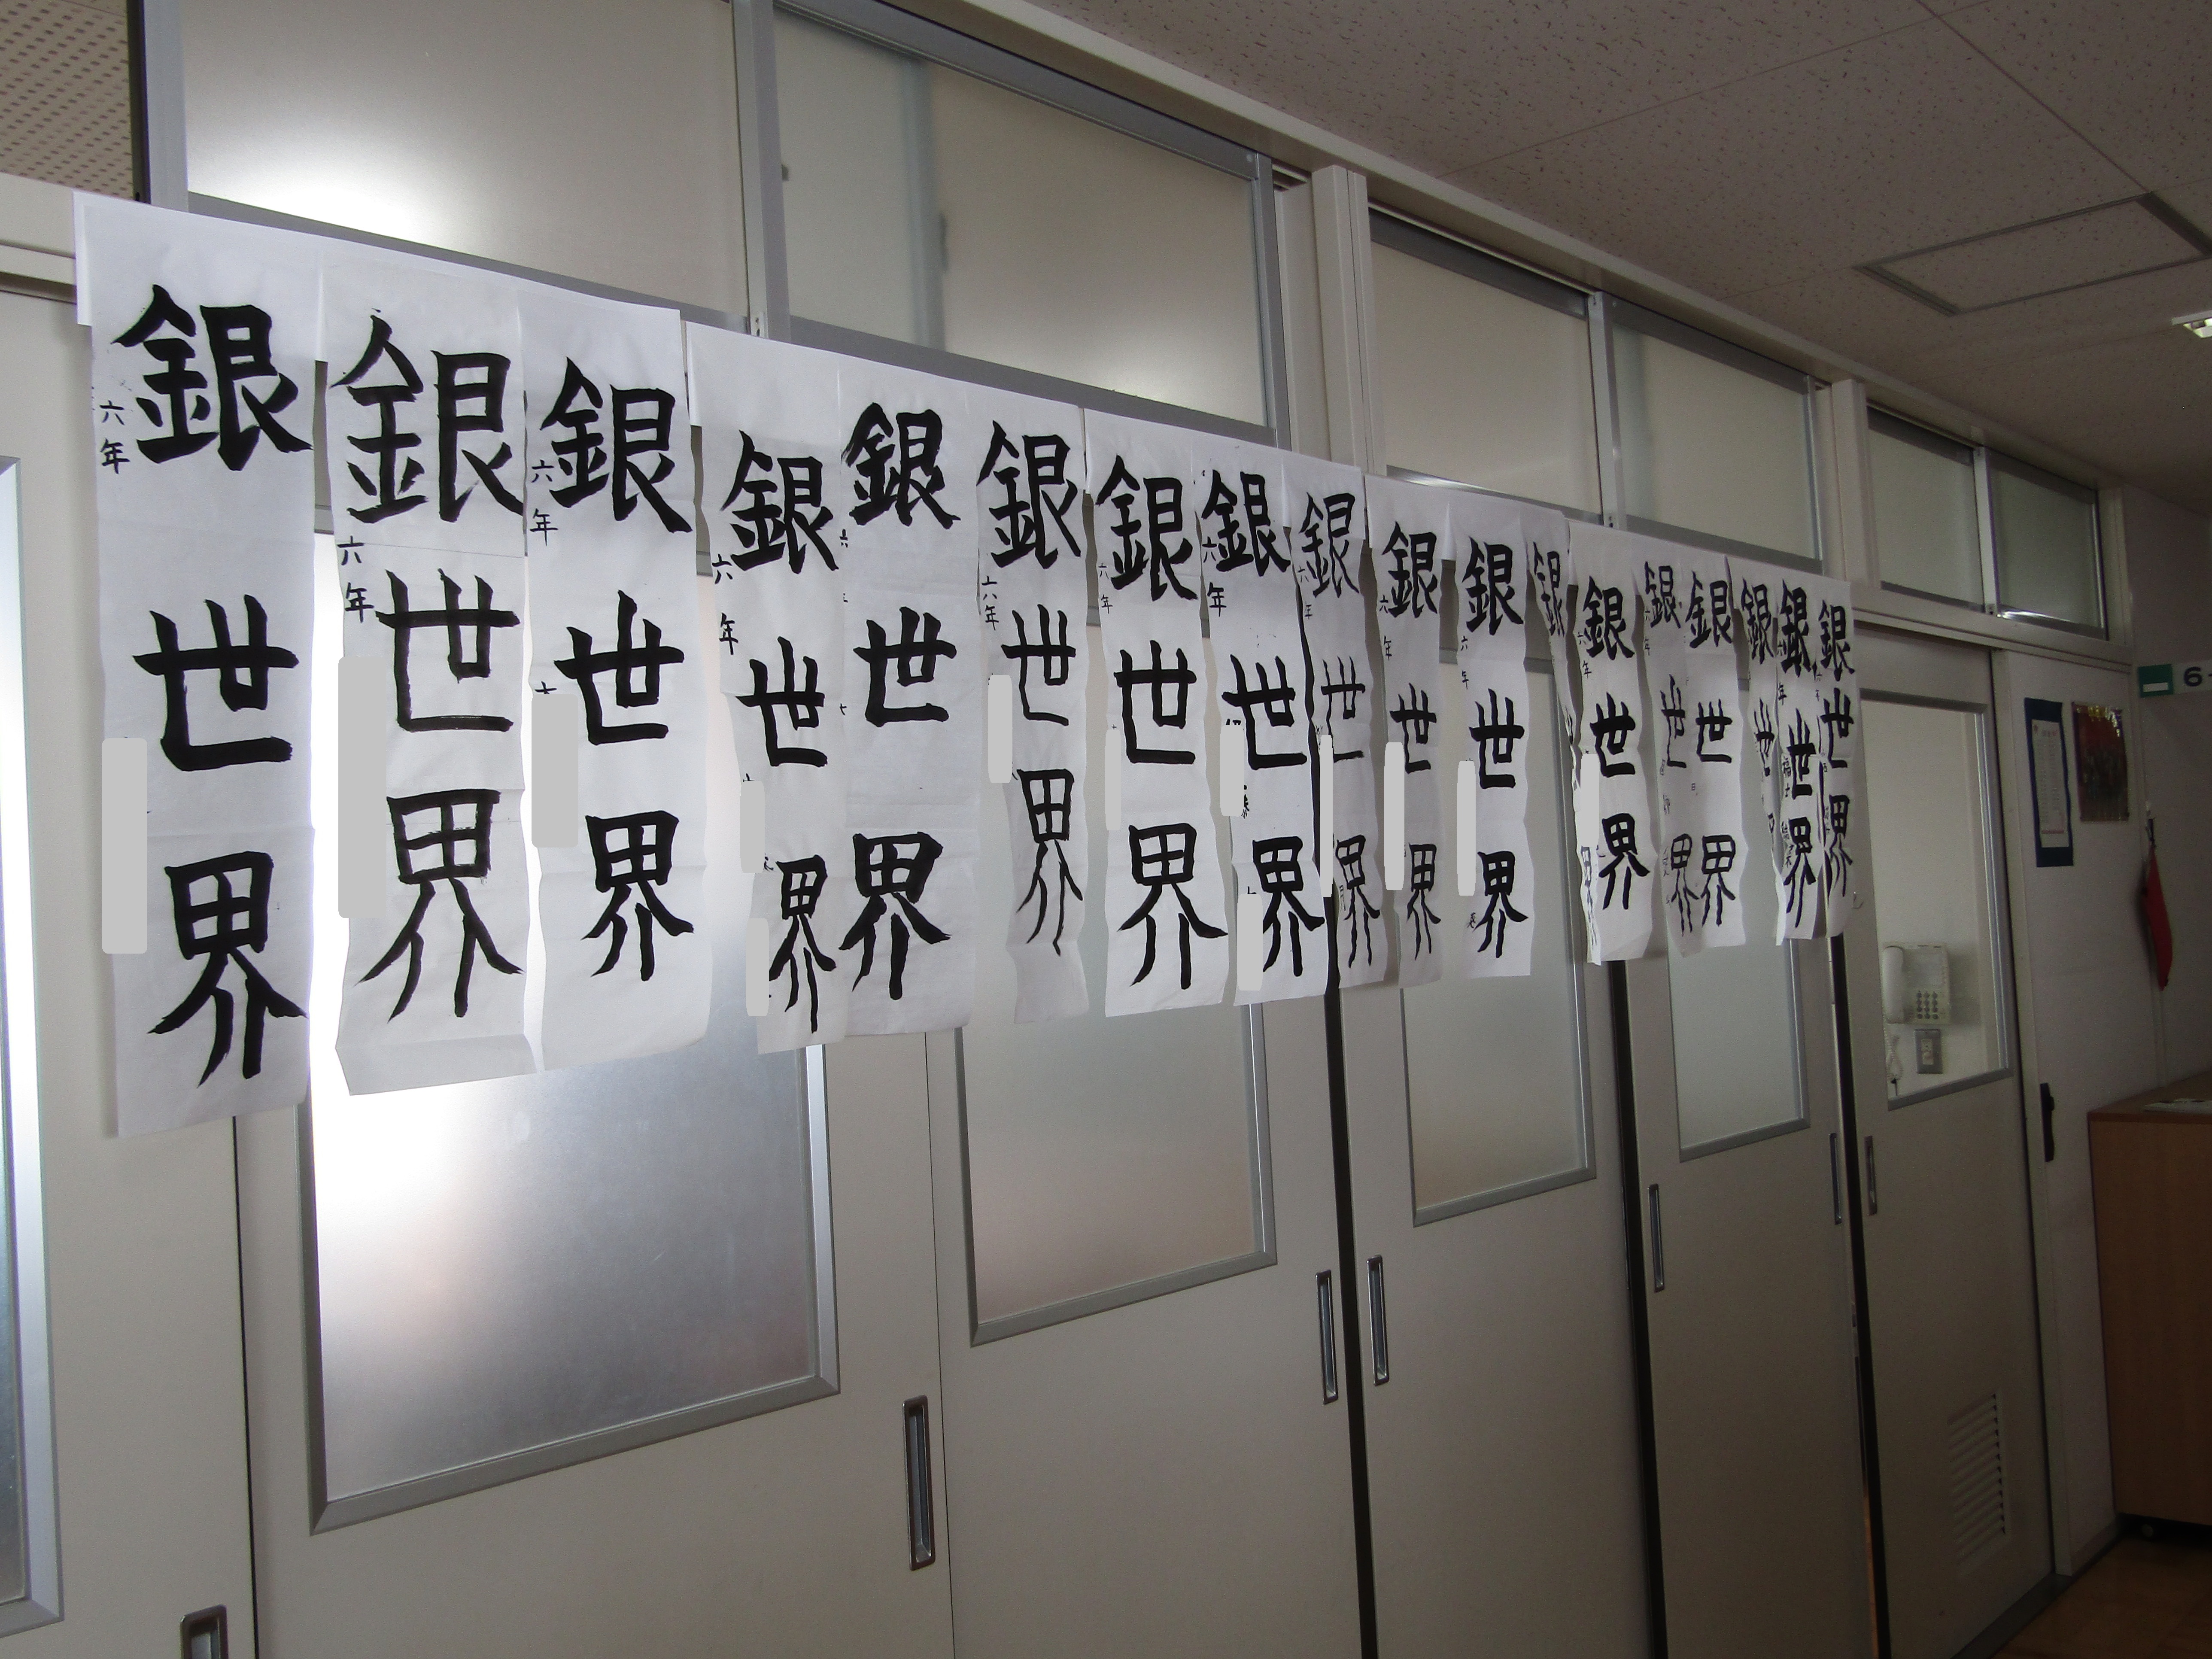 銀世界
六年
銀世界
六年
銀世界
六年
銀世界
六年
銀世界
銀世界
六年
銀世界
六年
銀世界
六年
銀世界
六年
銀世界
六年
銀世界
六年
銀
銀世界
六年
銀世界
銀世界
銀世
銀世界
銀世界
6